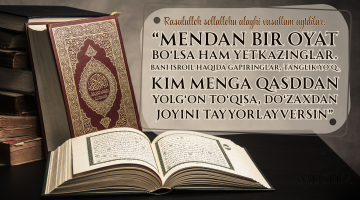 Rasululloh sollallohu alayhi vasallam aytdilar:
“MENDAN BIR OYAT
BO‘LSA HAM YETKAZINGLAR.
BANI ISROIL HAQIDA GAPIRINGLAR, TANGLIK YO‘Q.
KIM MENGA QASDDAN
YOLG‘ON TO‘QISA, DO‘ZAXDAN
JOYINI TAYYORLAYVERSIN”